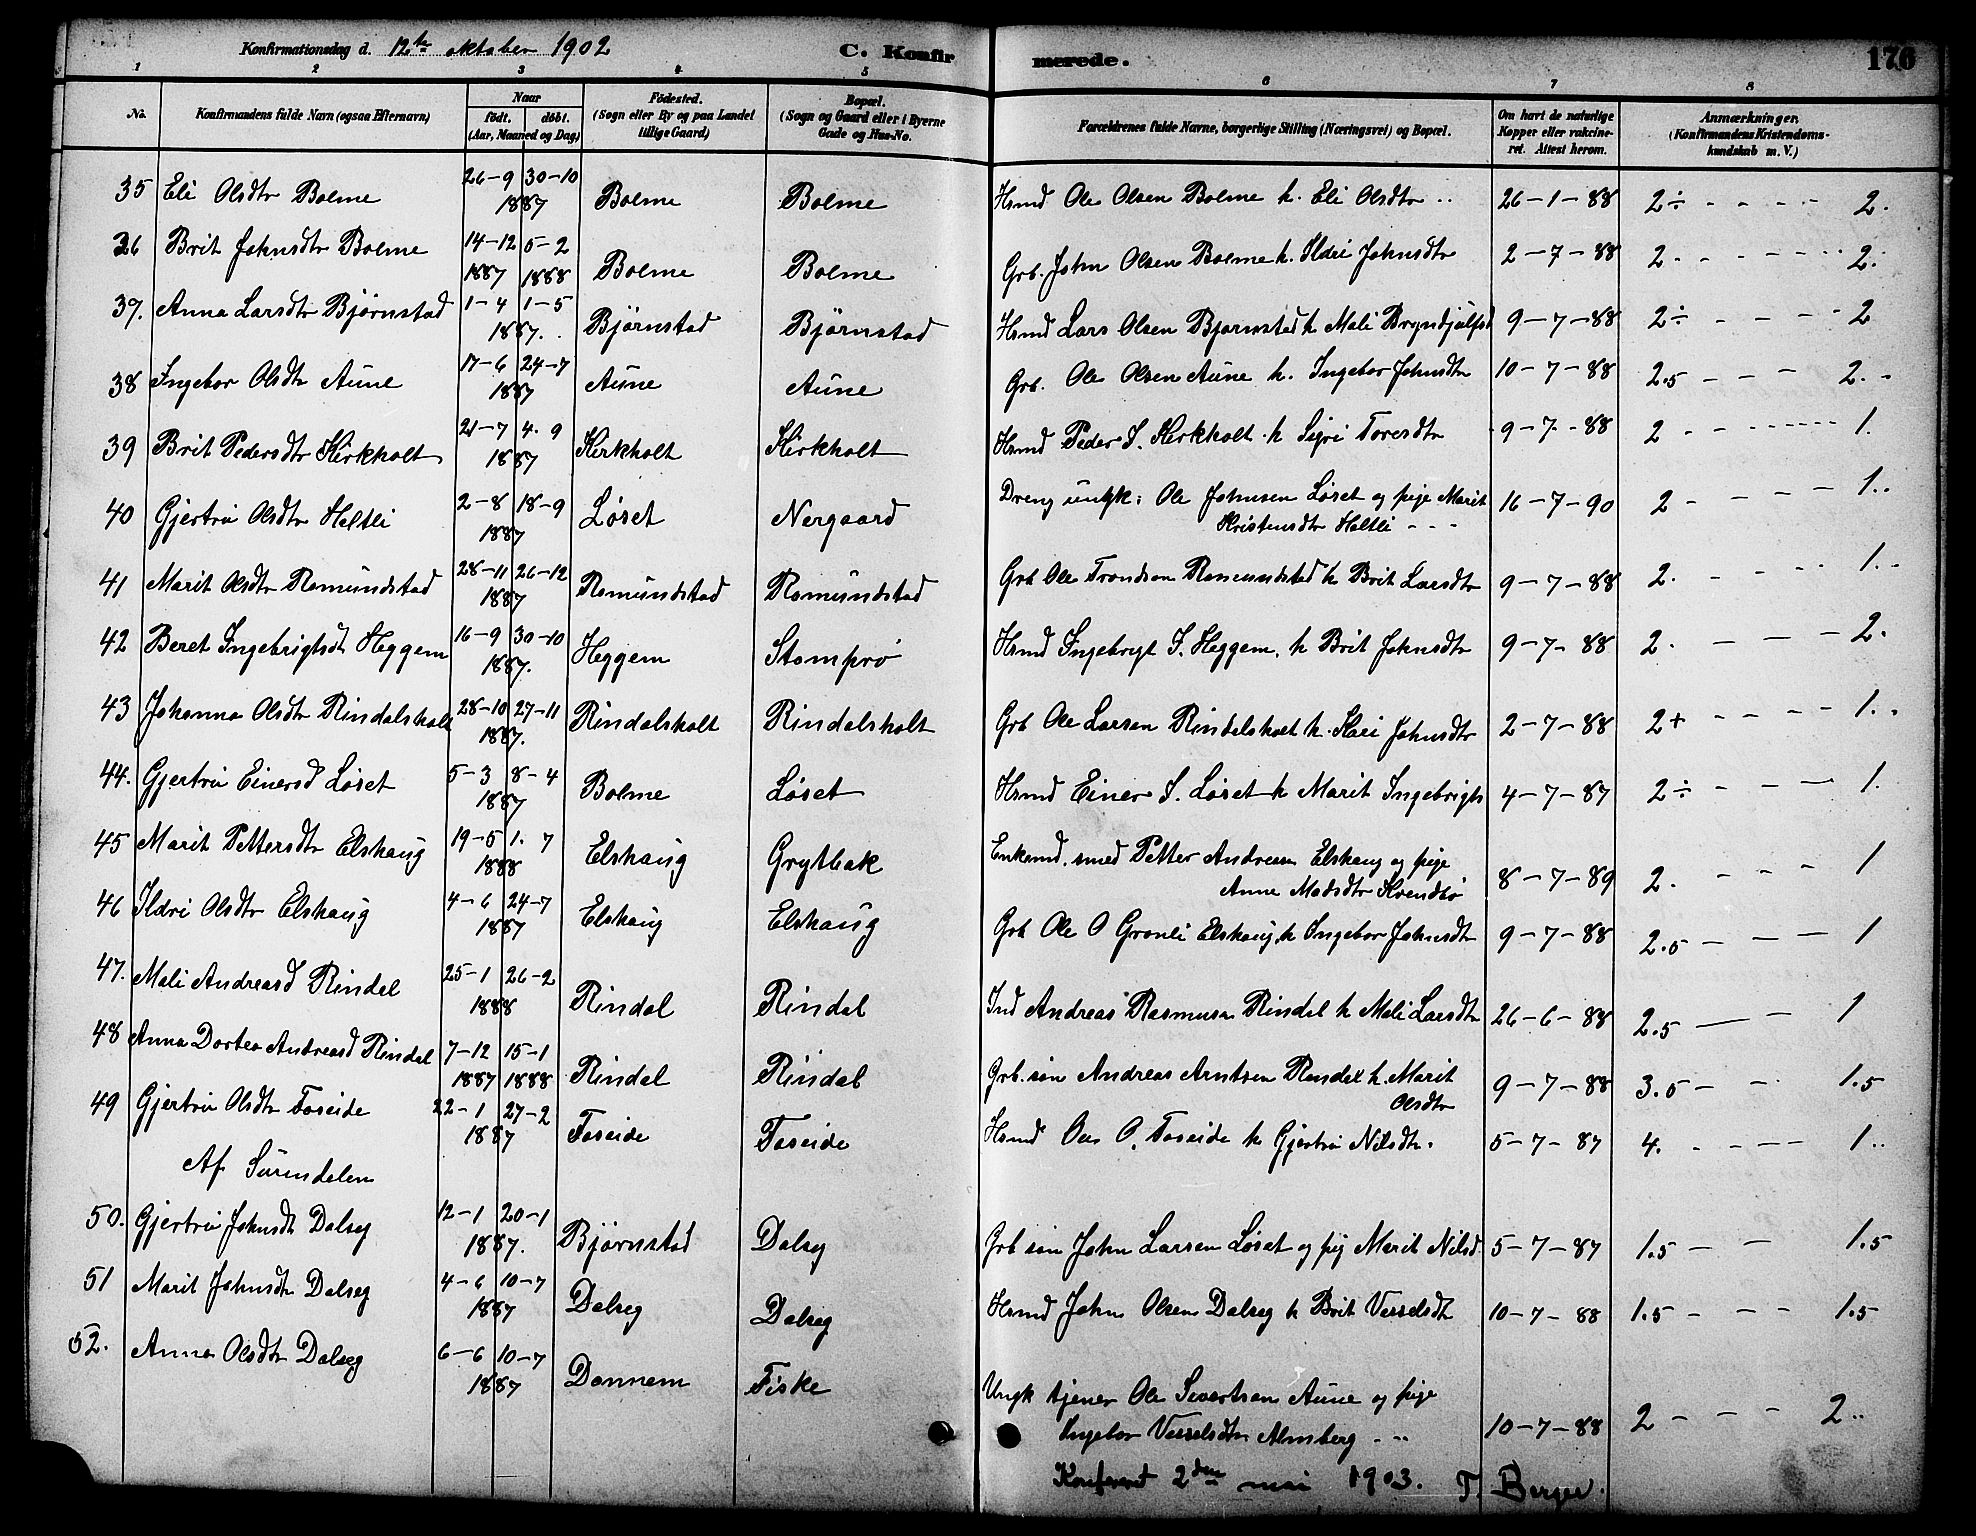 Konfirmationsdag d. 12te oktober 1902 C. Konfirmerede. 176
1 2 3 4 5 6 7 8
No. Konfirmandens fulde Navn (ogsaa Efternavn) Naar födt. döbt. (Aar, Maaned og Dag) Födested. (Sogn eller By og paa Landet tillige Gaard) Bopæl. (Sogn og Gaard eller i Byerne Gade og Hus-No. Forældrenes fulde Navne, borgerlige Stilling (Næringsvei) og Bopæl. Om havt de naturlige Kopper eller vaccineret. Attest herom. Anmærkninger. (Konfirmandens Kristendomskundskab m. V.)
35 Eli Olsdtr Bolme 26-9 30-10 1887 Bolme Bolme Hsmd Ole Olsen Bolme h. Eli Olsdtr 26-1-88 2÷ 2.
36 Brit Johnsdtr Bolme 14-12 1887 5-2 1888 Bolme Bolme Grb. John Olsen Bolme h. Ildri Johnsdtr 2-7-88 2. 2.
37. Anna Larsdtr Bjørnstad 1-4 1-5 1887. Bjørnstad Bjørnstad Hsmd Lars Olsen Bjørnstad h Mali Bryndjulfsd 9-7-88 2÷ 2
38 Ingebor Olsdtr Aune 17-6 24-7 1887 Aune Aune Grb. Ole Olsen Aune h. Ingebor Johnsdtr 10-7-88 2.5 2.
39 Brit Pedersdtr Kirkholt 21-7 4. 9 1887 Kirkholt Kirkholt Hsmd Peder S. Kirkholt h Sigri Toresdtr 9-7-88 2 1.
40 Gjertru Olsdtr Holtli 2-8 18-9 1887 Løset Nergaard Dreng ungk: Ole Johnsen Løset og pige Marit 16-7-90 2 1.
Kristensdtr Holtli
41 Marit Olsdtr Romundstad 28-11 26-12 1887 Romundstad Romundstad Grb Ole Trondsen Romundstad h Brit Larsdtr 9-7-88 2. 1.
42 Beret Ingebrigtsdt Heggem 16-9 30-10 1887. Heggem Stomprø Hsmd Ingebrigt I. Heggem, h Brit Johnsdtr 9-7-88 2. 2.
43 Johanna Olsdtr Rindalsholt 28-10 27-11 1887. Rindalsholt Rindalsholt Grb Ole Larsen Rindalsholt h. Kari Johnsdtr 2-7-88 2+ 1.
44. Gjertru Einersd Løset 5-3 8-4 1887 Bolme Løset Hsmd Einer S. Løset h Marit Ingebrigts 4-7-87 2÷ 1.
45 Marit Pettersdtr Elshaug 19-5 1. 7 1888 Elshaug Grytbak Enkemd. smed Petter Andresen Elshaug og pige 8-7-89 2. 1
Anne Madsdtr Kvendbø
46 Ildri Olsdtr Elshaug 4-6 24-7 1887 Elshaug Elshaug Grb Ole O Grønli Elshaug, h Ingebor Johnsdtr 9-7-88 2.5 1
47. Mali Andreasd Rindal 25-1 26-2 1888 Rindal Rindal Ind Andreas Rasmusen Rindal h Mali Larsdtr 26-6-88 2.5 1
48 Anna Dortea Andreasd Rindal 7-12 1887 15-1 1888 Rindal Rindal Grb. søn Andreas Arntsen Rindal h. Marit 9-7-88 3.5 1.5
Olsdtr
49 Gjertru Olsdtr Foseide 22-1 27-2 1887 Foseide Foseide Hsmd Ole O. Foseide h Gjertru Nilsdtr. 5-7-87 4. 1
Af Surendalen
50. Gjertru Johnsdt Dalseg 12-1 20-1 1887. Bjørnstad Dalseg Grb søn John Larsen Løset og pig Marit Nilsd 5-7-87 1.5 1.5
51 Marit Johnsdtr Dalseg 4-6 10-7 1887 Dalseg Dalseg Hsmd John Olsen Dalseg h Brit Vesselsdt 10-7-88 1.5 1.5
52. Anna Olsdtr Dalseg 6-6 10-7 1887 Dønnem Fiske Ungk tjener Ole Sivertsen Aune og pige
Ingebor Vesselsdtr Almberg 10-7-88 2 2
Konfereret 2den mai 1903. T. Berger.